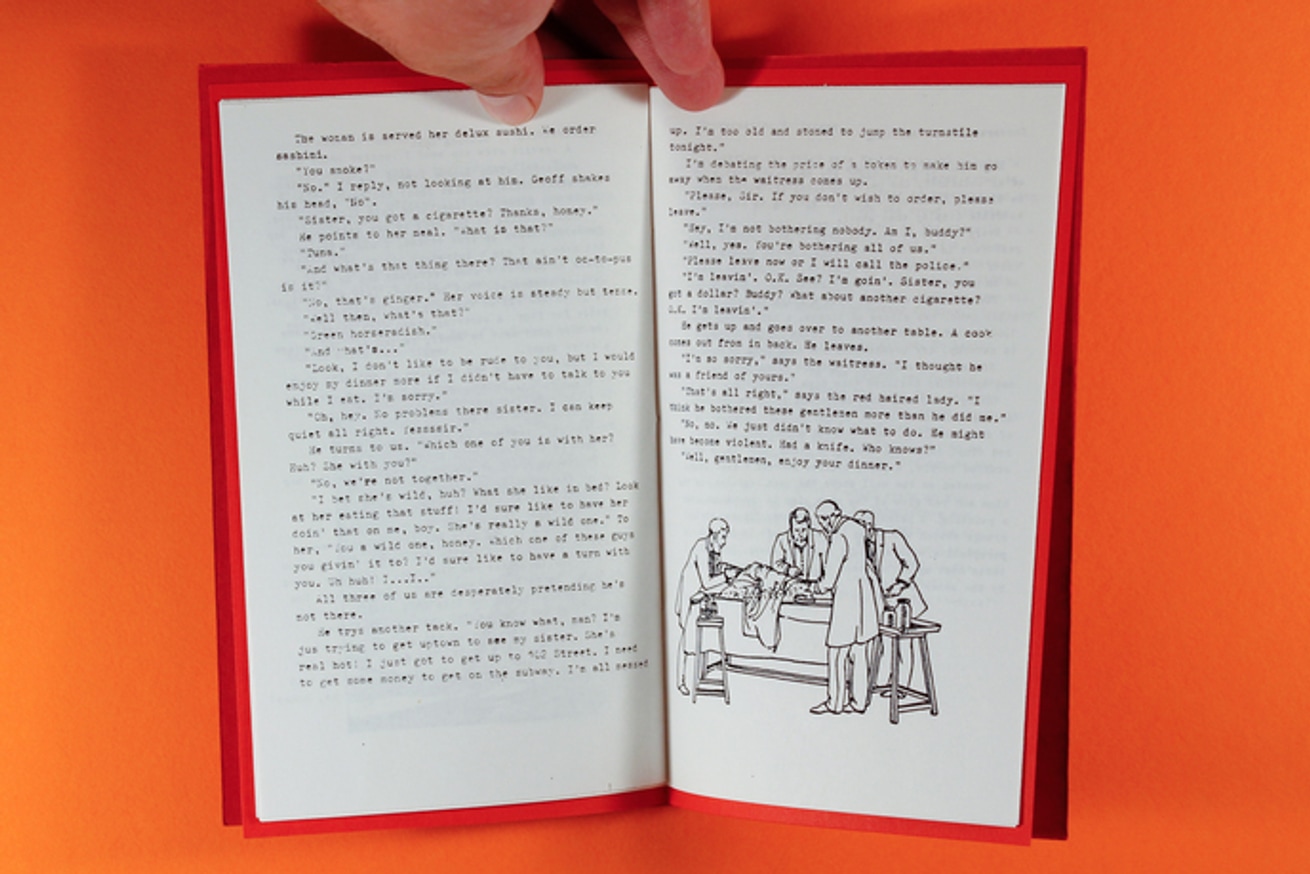 The woman is served her delux sushi. We order
sashimi.
"You smoke?"
"No." I reply, not looking at him. Geoff shakes
his head, "No".
"Sister, you got a cigarette? Thanks, honey."
He points to her meal. "What is that?"
"Tuna."
"And what's that thing there? That ain't oc-to-pus
is it?"
"No, that's ginger." Her voice is steady but tense.
"Well then, what's that?"
"Green horseradish."
"And what's..."
"Look, I don't like to be rude to you, but I would
enjoy my dinner more if I didn't have to talk to you
while I eat. I'm sorry."
"Oh, hey. No problems there sister. I can keep
quiet all right. Yesssir."
He turns to us. "Which one of you is with her?
Huh? She with you?"
"No, we're not together."
"I bet she's wild, huh? What she like in bed? Look
at her eating that stuff! I'd sure like to have her
doin' that on me, boy. She's really a wild one." To
her, "You a wild one, honey. Which one of these guys
you givin' it to? I'd sure like to have a turn with
you. Uh huh! I...I.."
All three of us are desperately pretending he's
not there.
He trys another tack. "You know what, man? I'm
jus trying to get uptown to see my sister. She's
real hot! I just got to get up to Street. I need
to get some money to get on the subway. I'm all
up. I'm too old and stoned to jump the turnstile
tonight."
I'm debating the price of a token to make him go
away when the waitress comes up.
"Please, Sir. If you don't wish to order, please
leave."
"Hey, I'm not bothering nobody. Am I, buddy?"
"Well, yes. You're bothering all of us."
"Please leave now or I will call the police."
"I'm leavin'. O.K. See? I'm goin'. Sister, you
got a dollar? Buddy? What about another cigarette?
O.K. I'm leavin'."
He gets up and goes over to another table. A cook
comes out from in back. He leaves.
"I'm so sorry," says the waitress. "I thought he
was a friend of yours."
"That's all right," says the red haired lady. "I
think he bothered these gentlemen more than he did me."
"No, no. We just didn't know what to do. He might
have become violent. Had a knife. Who knows?"
"Well, gentlemen, enjoy your dinner."